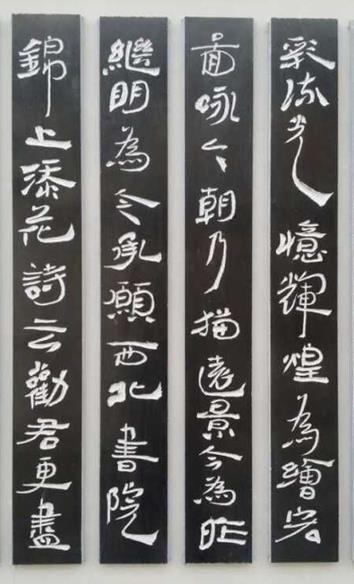 彩流光憶輝煌為繪宏
圖咏今朝乃描遠景今為昨
繼明為今承願西北書院
錦上添花詩云勸君更盡